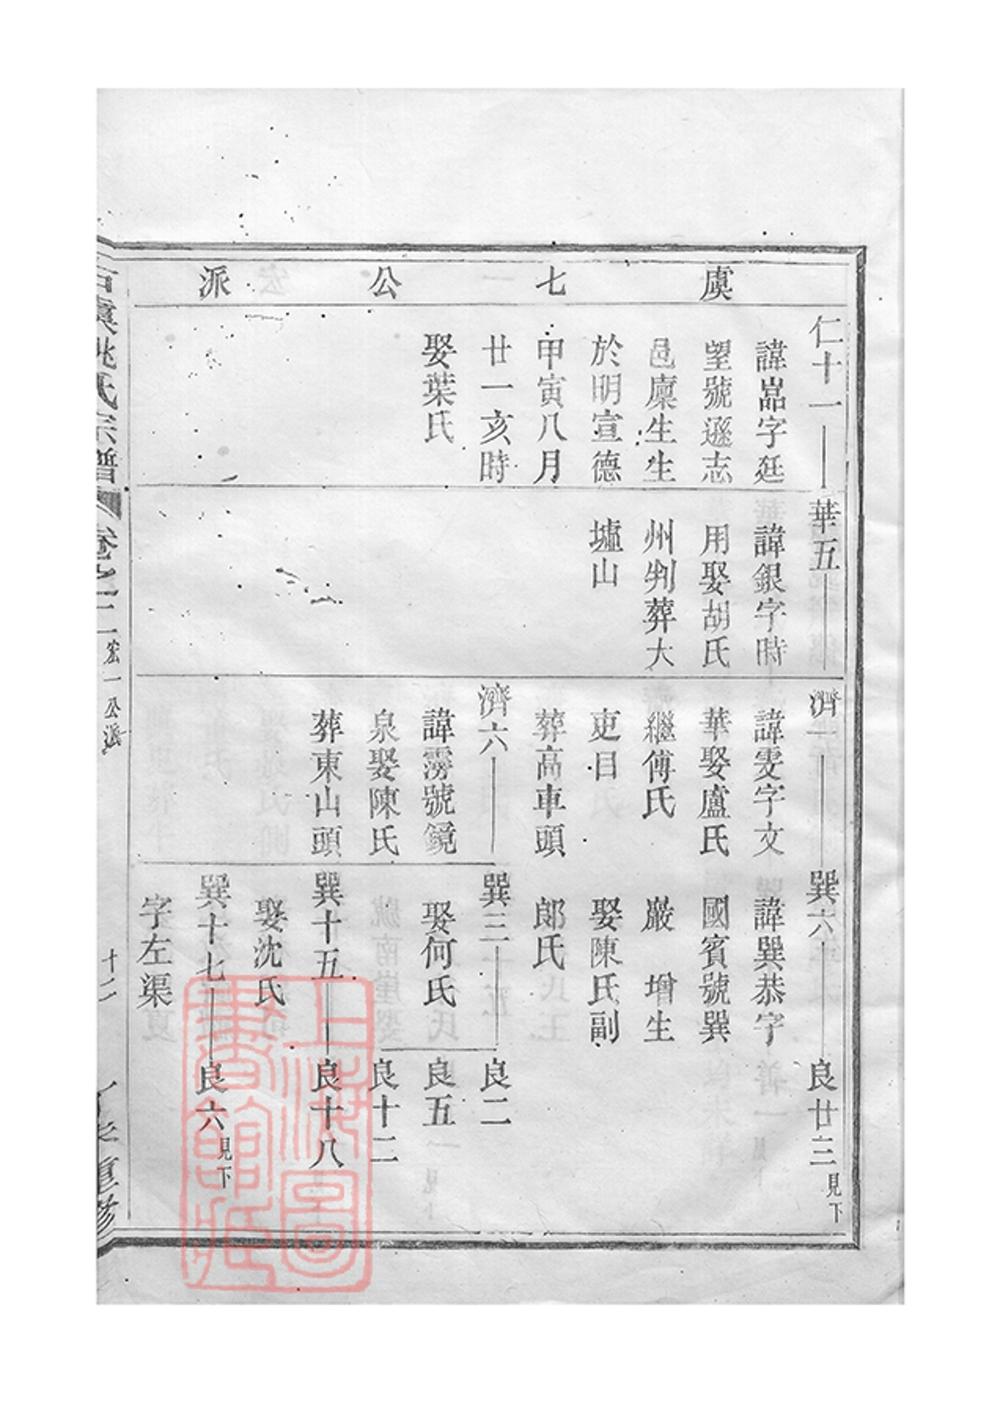 虞七公派
仁十一
諱嵓字廷
望號遜志
邑廩生生
於明宣德
甲寅八月
廿一亥時
娶葉氏
華五
諱銀字時
用娶胡氏
州判葬大
墟山
濟一
諱雯字文
華娶盧氏
繼傅氏
吏目
葬高車頭
濟六
諱雱號鏡
泉娶陳氏
葬東山頭
巽六
諱巽恭字
國賓號巽
巖 增生
娶陳氏副
郎氏
巽三
娶何氏
巽十五
娶沈氏
巽十七
字左渠
良廿三見下
良二
良五
良十二
良十八
良六見下
古虞姚氏宗譜
卷之二
宏一公派
十二
重修
上海圖
書館藏